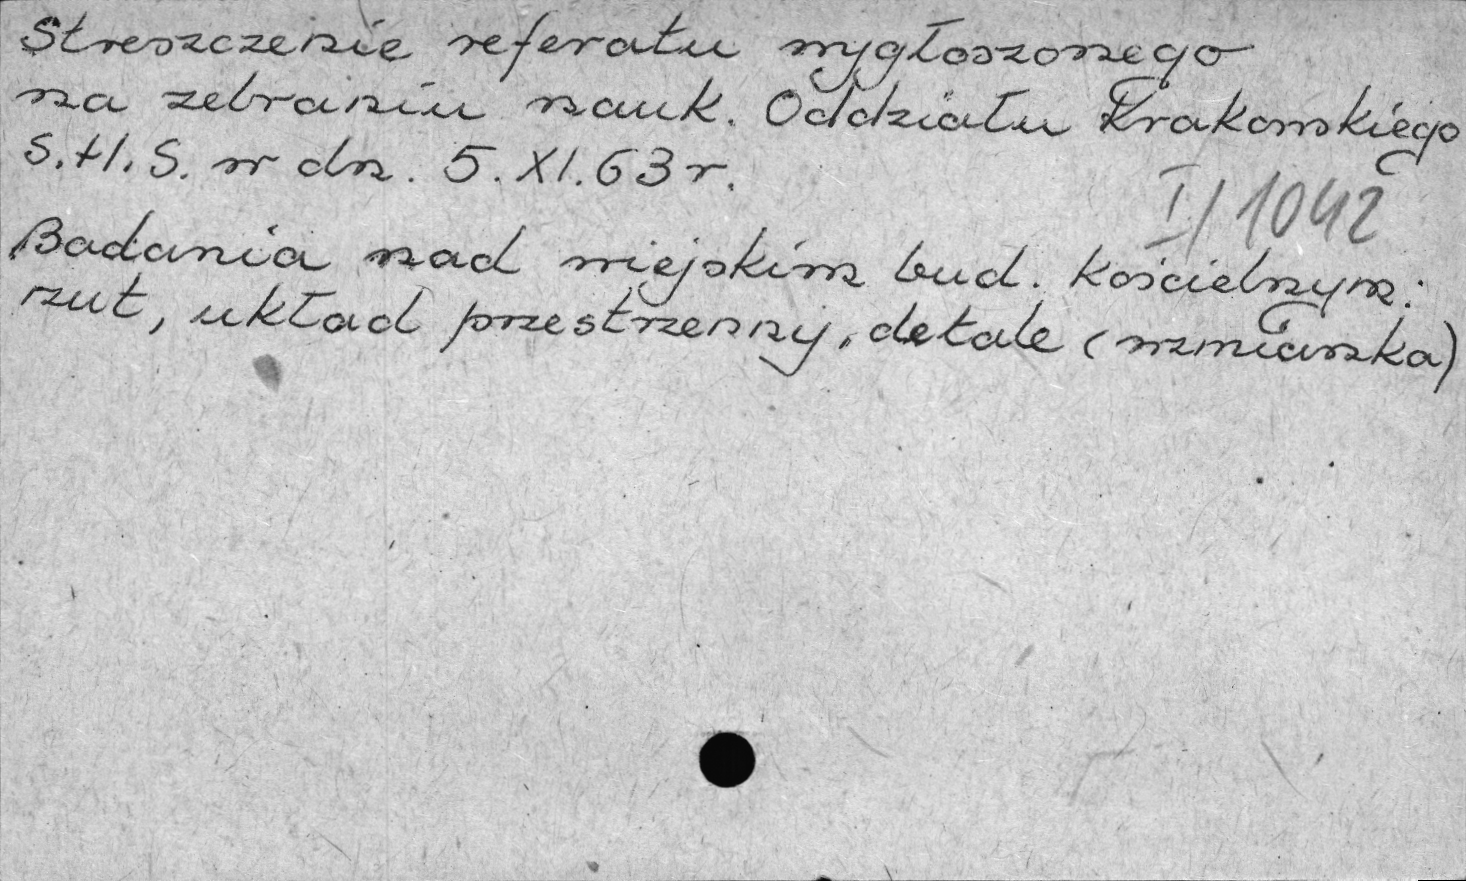 Streszczenie referatu wygłoszonego
na zebraniu nauk. Oddziału Krakowskiego
S.H.S. w dn. 5.XI.63 r.
I/1042
Badania nad miejskim bud. kościelnym:
rzut, układ przestrzenny, detale (wzmianka)